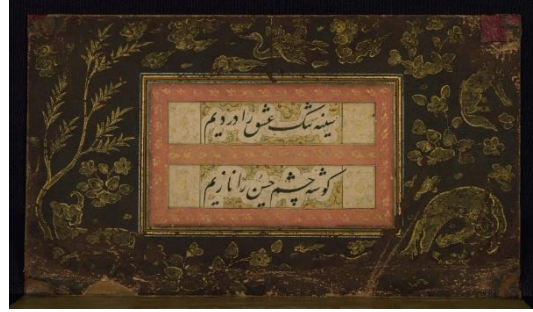 سینه تنگ عشق را دردیم
گوشه چشم حسن را نازیم